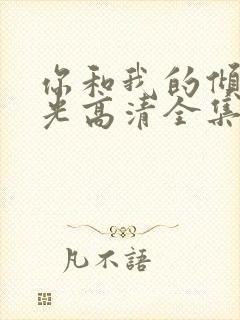 你和我的倾
光高清全集
凡不語